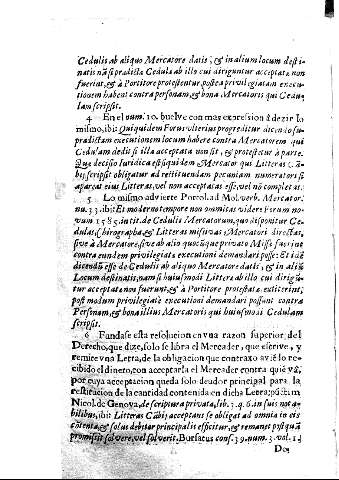 Cedulis ab aliquo Mercatore datis, & in alium locum desti-
natis nã si prædicta Cedula ab illo cui diriguntur acceptatæ non
fuerint, & à Portitore protestentur, postea privilegiatam execu-
tionem habent contra personam, & bona Mercatoris qui Cedu-
lam scripsit.
4 En el num. 10. buelve con mas expression à dezir lo
mismo, ibi: Quiquidem Forus vlterius progreditur dicendo su-
pradictam executionem locum habere contra Mercatorem qui
Cedulam dedit si illa acceptata non sit, & protestetur à parte.
Quæ decisio Iuridica est siquidem Mercator qui Litteras Cã-
bis scripsit obligatur ad restituendam pecuniam numeratori si
apareat eius Litteras, vel non acceptatas esse, vel nõ completas.
5 Lo mismo advierte Portol. ad Mol. verb. Mercator.
nu. 33. ibi: Et moderno tempore non omnitas videre Forum no-
vum 1585. in tit. de Cedulis Mercatorum, quo disponitur Ce-
dulas, Chirographa, & Litteras missivas Mercatori directas,
sive à Mercatore, sive ab alio quocũque privato Missæ fuerint
contra eundem privilegiatæ executioni demandari posse: Et idẽ
dicendũ esse de Cedulis ab aliquo Mercatore datis, & in aliũ
Locum destinatis, nam si huiusmodi Litteræ ab illo cui dirigũ-
tur acceptatæ non fuerint, & à Portitore protestatæ extiterint,
post modum privilegiatæ executioni demandari possunt contra
Personam, & bona illius Mercatoris qui huiusmodi Cedulam
scripsit.
6 Fundase esta resolucion en vna razon superior del
Derecho, que dize, solo se libra el Mercader, que escrive, y
remite vna Letra, de la obligacion que contraxo avie lo re-
cibido el dinero, con aceptarla el Mercader contra quiẽ và,
por cuya acceptacion queda solo deudor principal para la
restitucion de la cantidad contenida en dicha Letra; pũctim
Nicol. de Genova, de scriptura privata, lib. 3. q. 6. in suis not a-
bilibus, ibi: Litteras Cãbij acceptans se obligat ad omnia in eis
cõtenta, & solus debitor principalis efficitur, & remanet postquã
promissit solvere, vel solverit. Bursatus cons. 39. num. 3. vol. 1.
De-